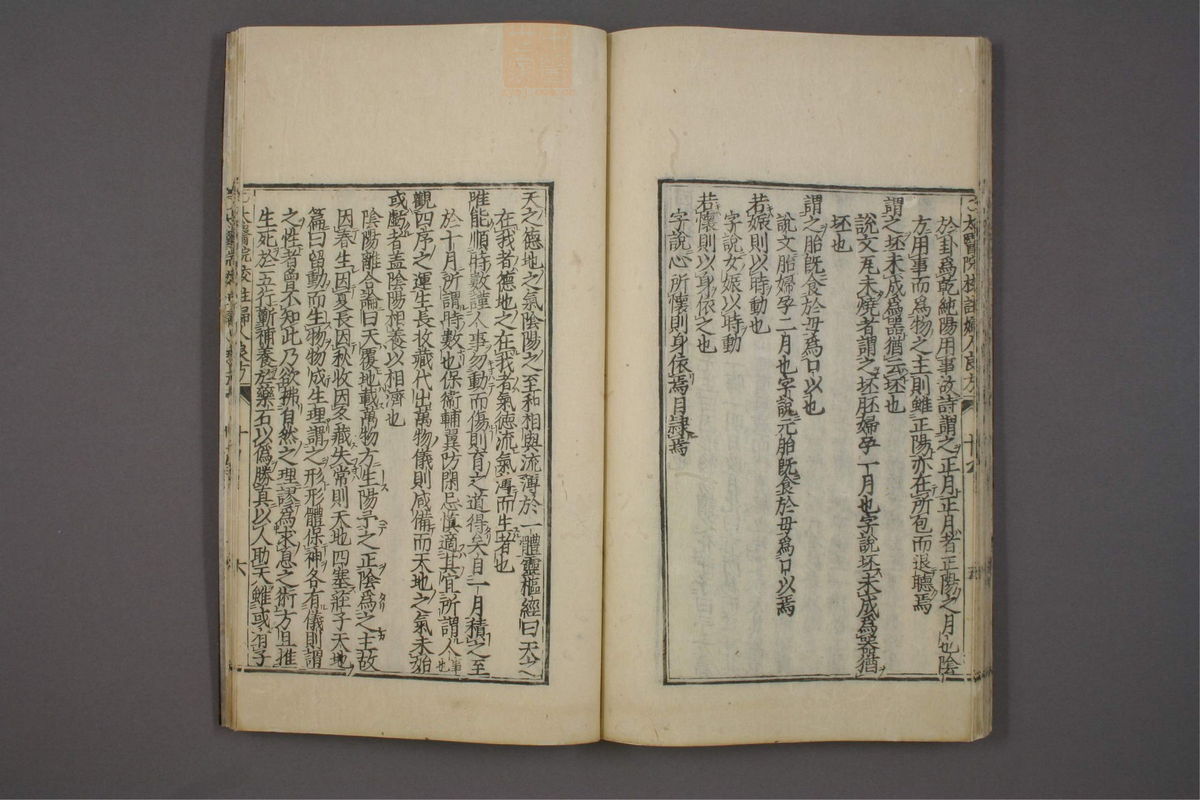 太醫院校註婦人良方
於卦爲乾純陽用事故詩謂之正月正月者正陽之月也陰
方用事而爲物之主則雖正陽亦在所包而退聽焉
謂之坯未成爲器猶云坯也
說文瓦未燒者謂之坯胚婦孕一月也字說坯未成爲器猶
坯也
謂之胎旣食於母爲口以也
說文胎婦孕二月也字說元胎旣食於母爲口以焉
若娠則以時動也
字說女娠以時動
若懷則以身依之也
字說心所懷則身依焉月隷焉
天之德地之氣陰陽之至和相與流薄於一體靈樞經曰天之
在我者德地之在我者氣德流氣薄而生者也
唯能順時數謹人事勿動而傷則育之道得矣自一月積之至
於十月所謂時數也保衞輔翼防閑忌愼適其宜所謂人事也
觀四序之運生長收藏代出萬物儀則咸備而天地之氣未始
或虧者盖陰陽相養以相濟也
陰陽離合論曰天覆地載萬物方生陽予之正陰爲之主故
因春生因夏長因秋收因冬藏失常則天地四塞莊子天地
篇曰留動而生物物成生理謂之形形體保神各有儀則謂
之性者曾不知此乃欲拂自然之理謬爲求息之術方且推
生死於五行蘄補養於藥石以僞勝眞以人助天雖或有子
太醫院校註婦人良方